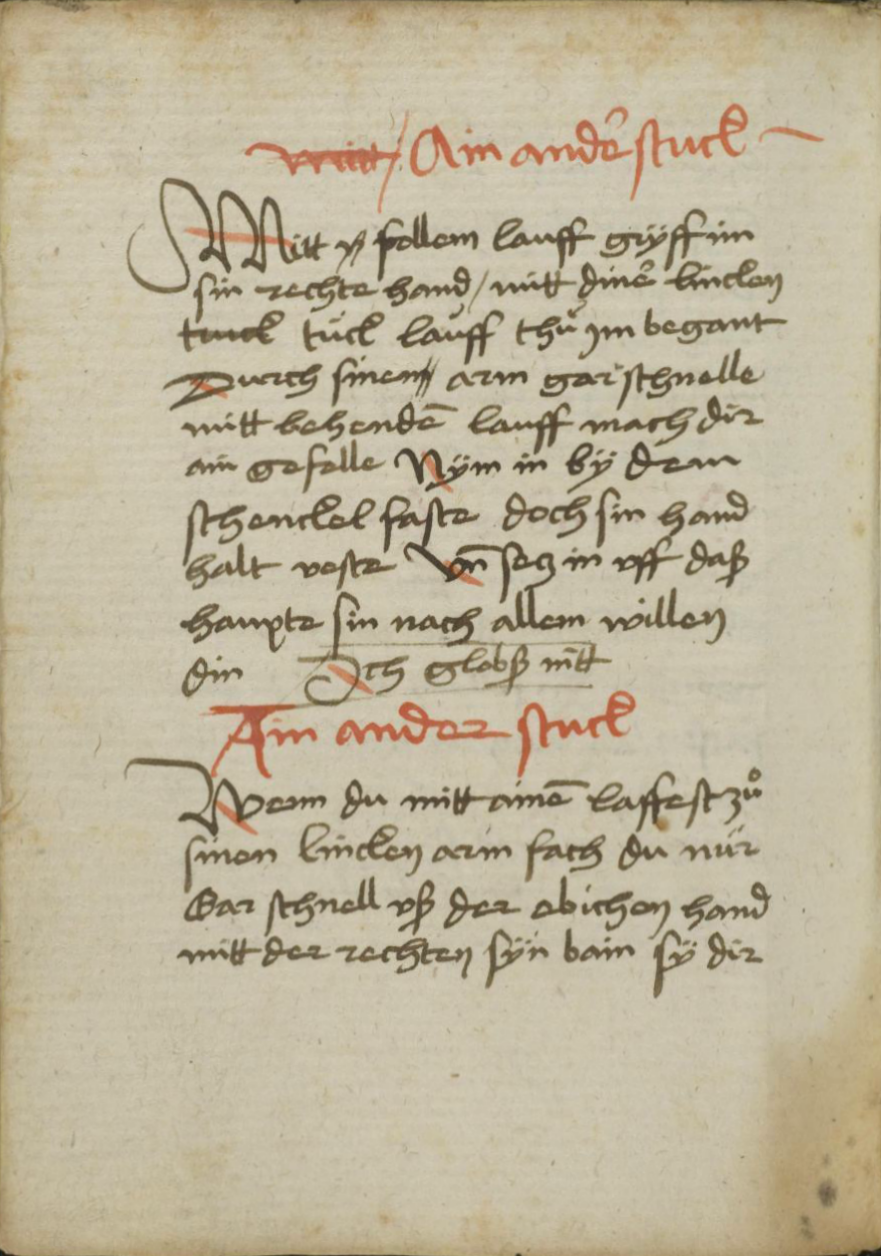 mitt / Ain ander̄ stuck
Mitt vollem lauff gryff im
sin rechte hand / mitt diner̄ lincken
truck tück lauff thů im begant
Durch sinem arm gar schnelle
mitt behendē lauff mach dir
ain gefelle Nÿm in bÿ dem
schenckel faste doch sin hand
halt veste Vn̄ secz in vff daß
haupte sin nach allem willen
din Ich glob ß nitt
Ain ander stuck
Wenn du mitt ainē laffest zů
sinen lincken arm fach du nür
Gar schnell vß der ebichen hand
mitt der rechten sÿn bain sÿ dir